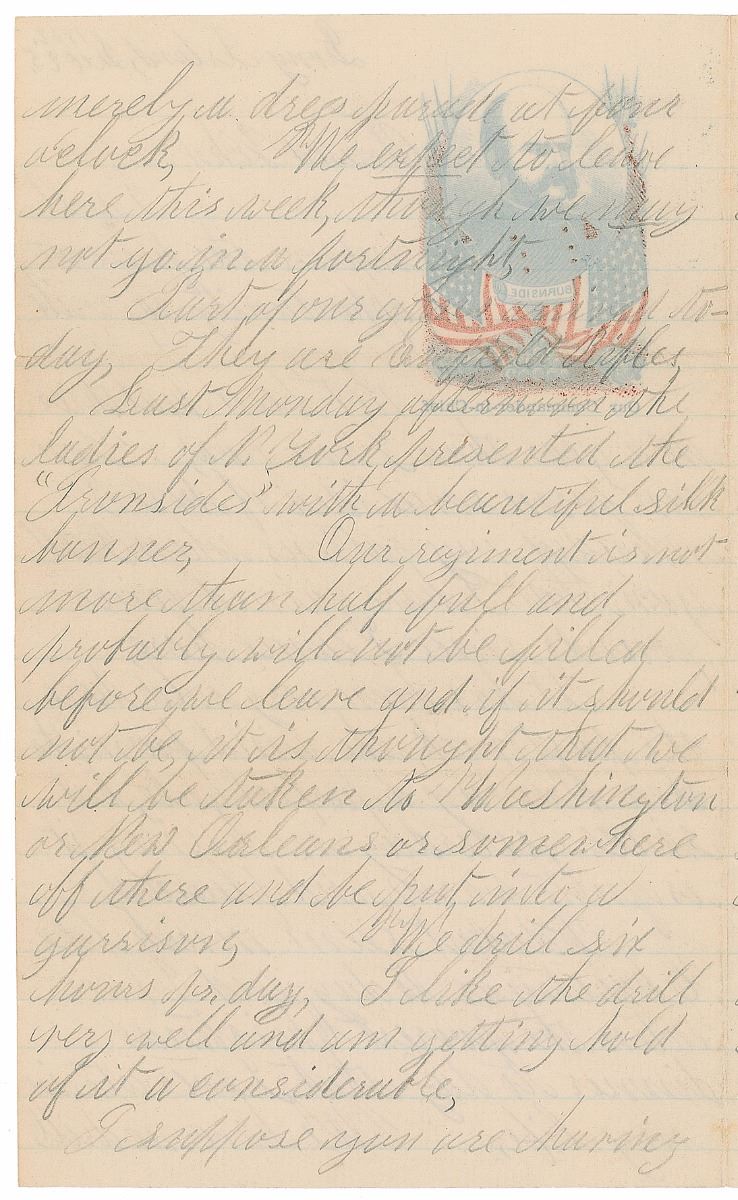 merely a dress parade at four
o'clock, We expect to leave
here this week, though we may
not go in a fortnight,
Part of our guns arrived to-
day, They are Enfield Rifles
Last Monday afternoon the
ladies of N. York presented the
"Ironsides" with a beautiful silk
banner, Our regiment is not
more than half full and
probably will not be filled
before we leave and if it should
not be, it is thought that we
will be taken to Washington
or New Orleans or somewhere
off there and be put into a
garrison, We drill six
hours pr. day, I like the drill
very well and am getting hold
of it a considerable,
I suppose you are having
BURNSIDE